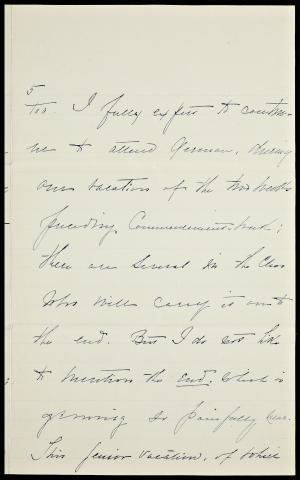 5
too. I fully expect to contin-
ue to attend German, during
our vacation of the two weeks
preceding Commencement week;
there are several in the Class
who will carry it on to
the end. But I do not like
to mention the end, which is
growing so painfully near.
This Senior vacation, of which